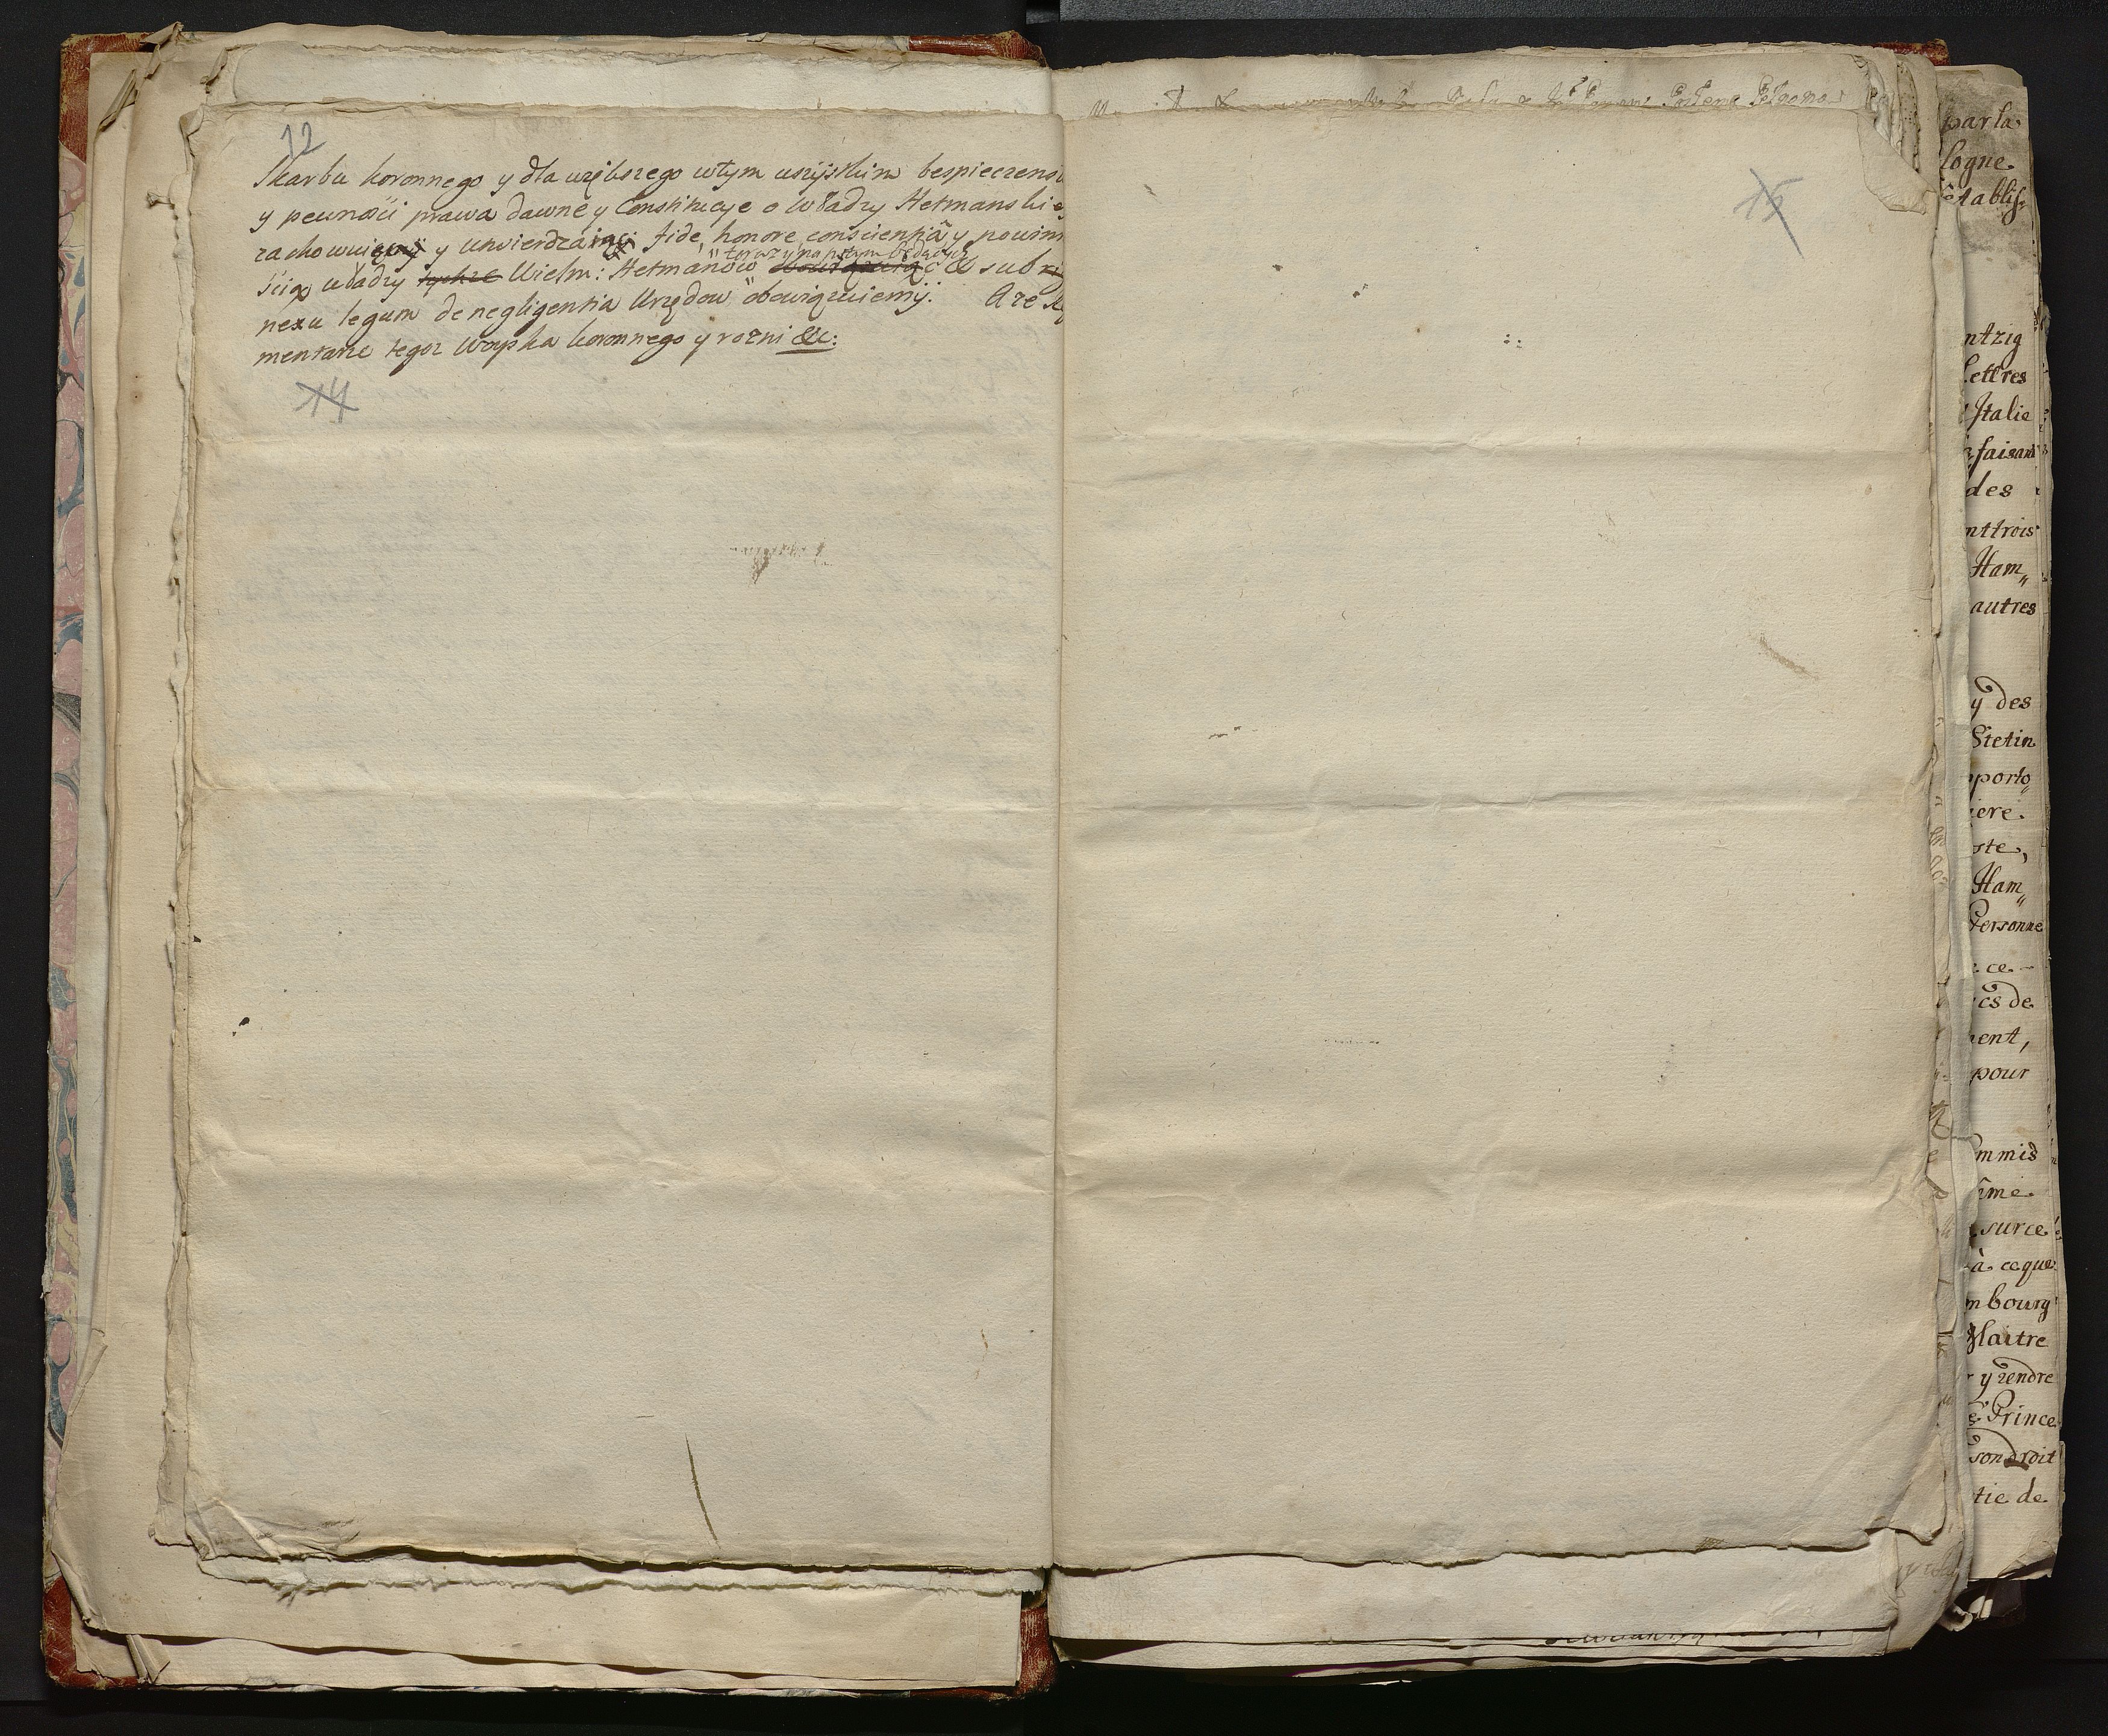 12
Skarbu koronnego y dla większego wtym wszystkim bespieczens
y pewności prawa dawne y Constitucye o Władzy Hetmanskie
zachowuiemy y utwierdzaiąc fide, honore, conscientiâ y powin
teraz y napotym będących
ścią władzy tychze Wielm: Hetmanów & sub
nexu legum de negligentia Urzędow obowiązuiemÿ. A ze
mentarze tegoz Woyska koronnego y rozni &c:
14
15
par la
logne
établis
ntzig
Lettres
Italie
faisant
des
nttrois
Ham„
autres
y des
Stetin
pporto„
iere.
ste,
Ham„
Personne
ce
cs de
ment,
pour
ommis
ime
surce
à ceque
mbourg
Maitre
y rendre
é Prince
son droit
tie de